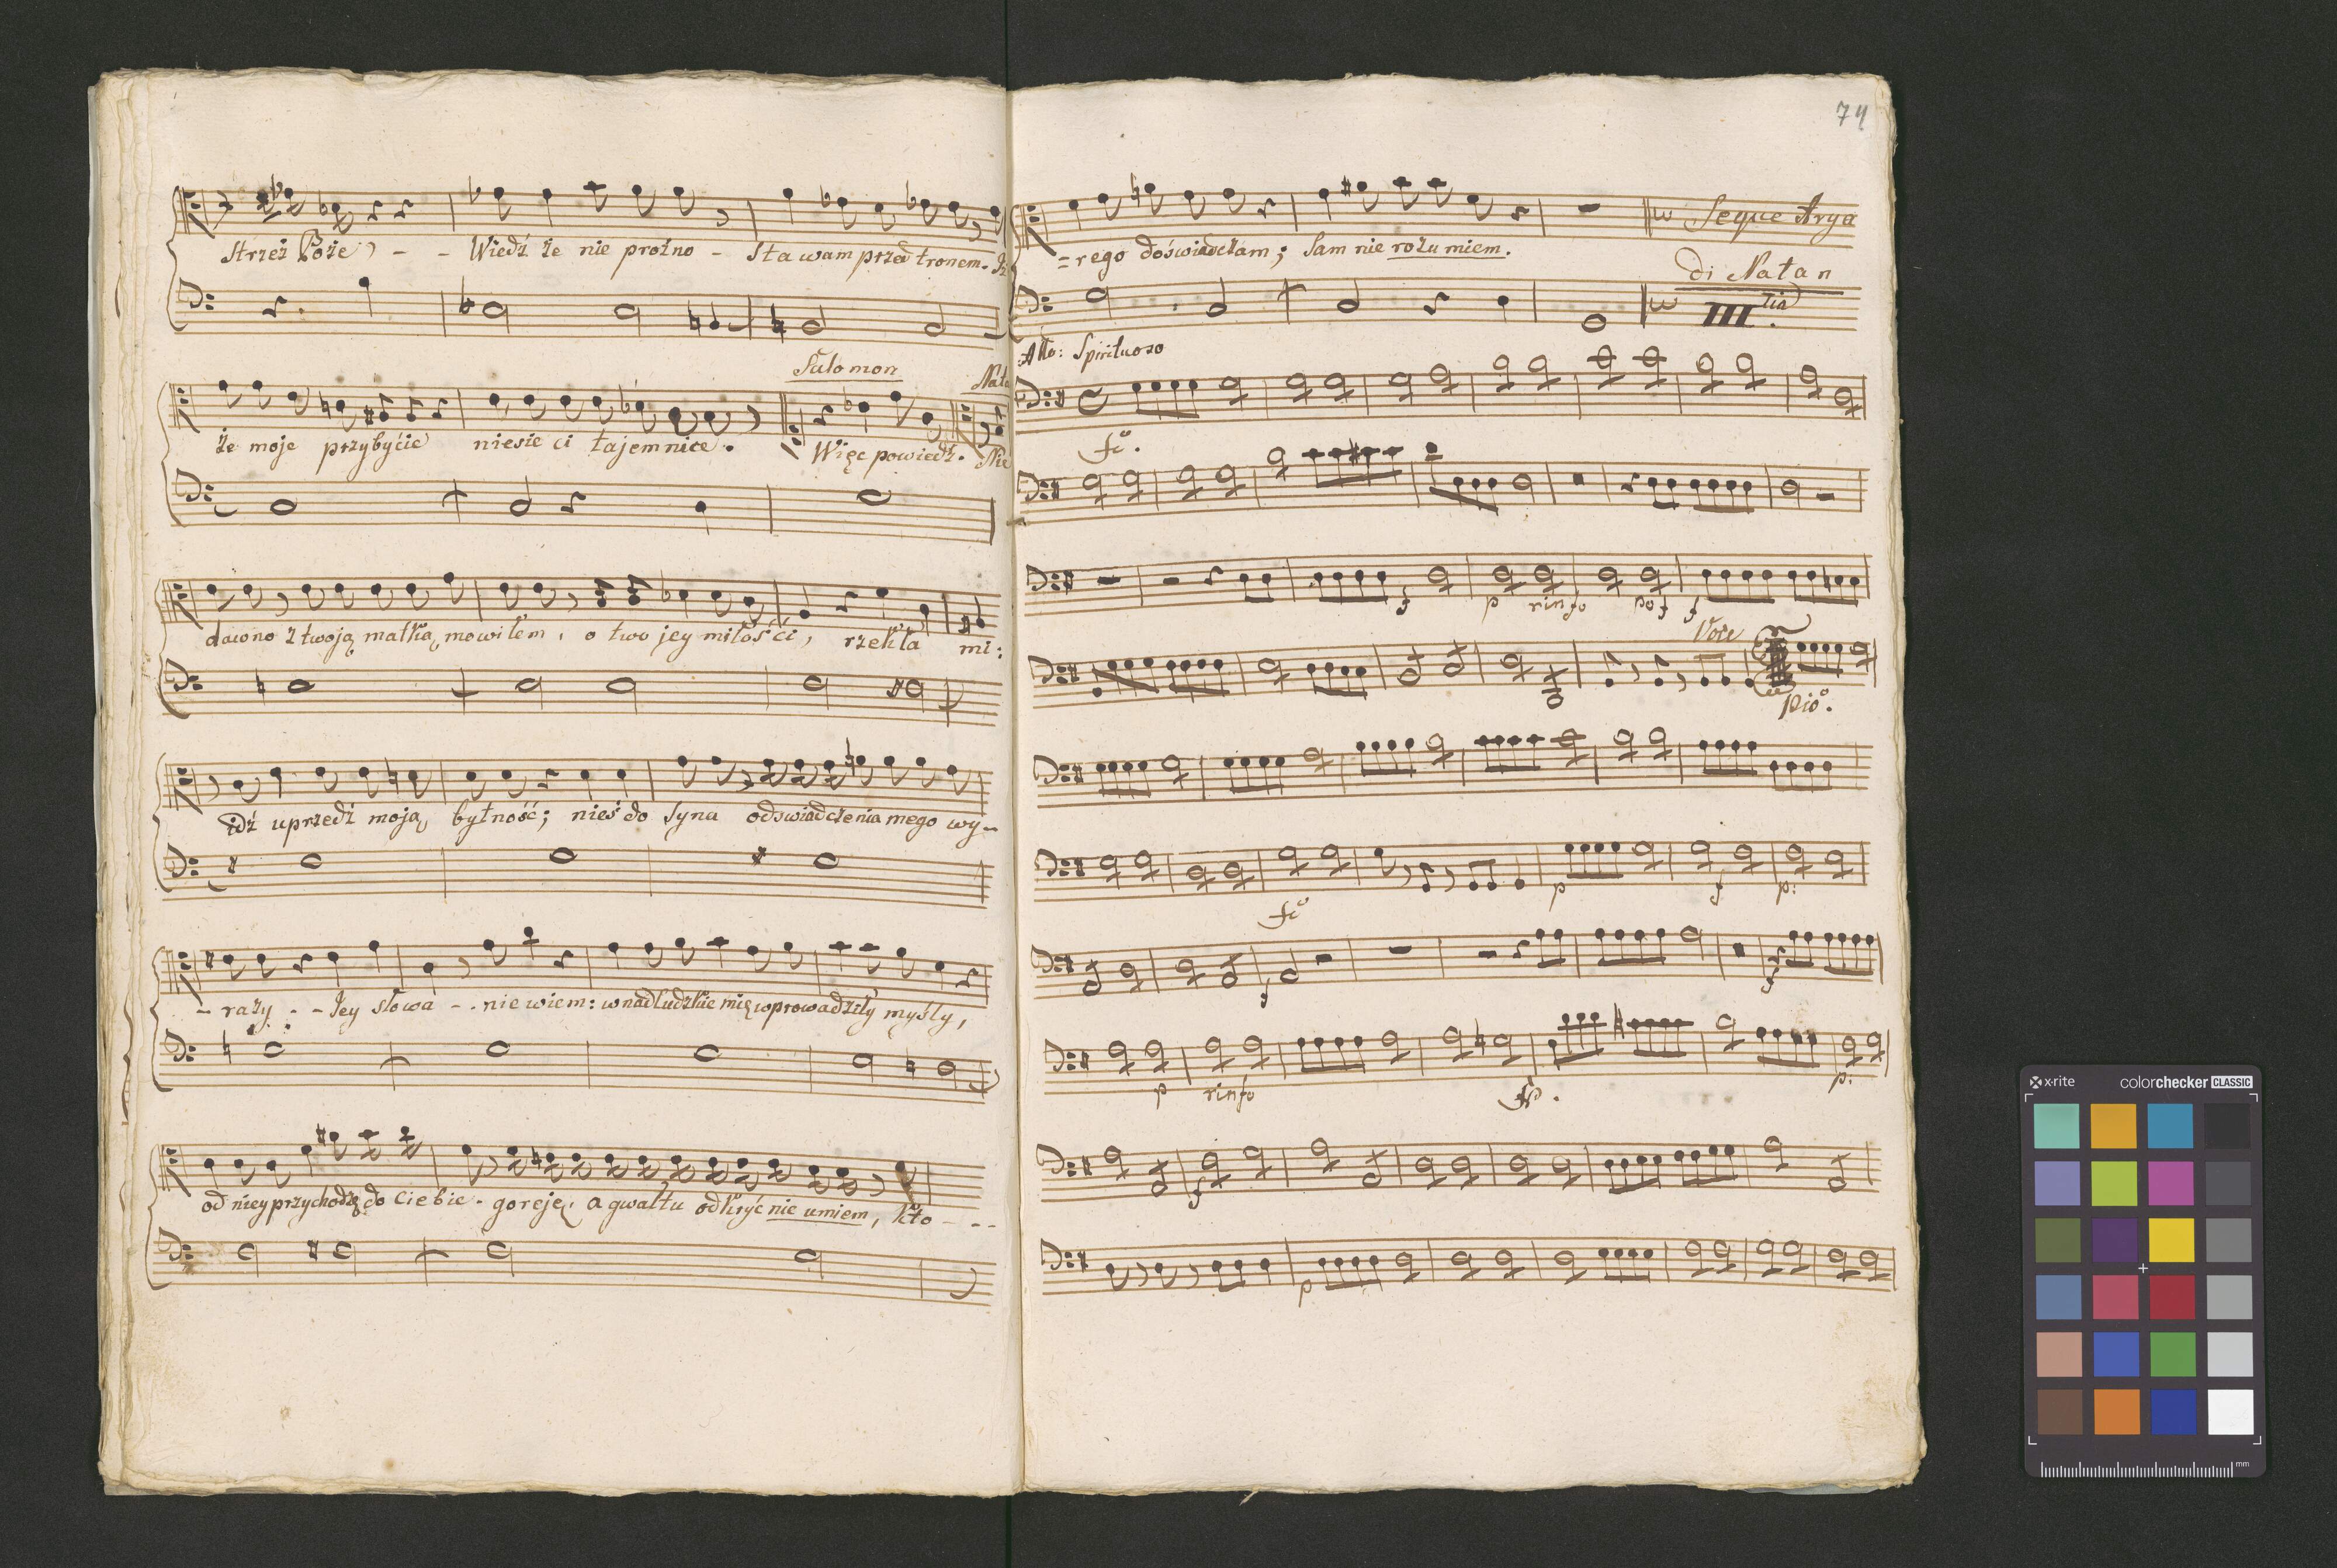 Strzeż Boże - - Wiedź że nie prożno - sta wam przed tronem. Iż
Salomon
że moje przybyćie niesie ci tajemnice. Więc powiedź. Nie
dawno z twoją matką mowiłem, o two jey miłośći, rzekła mi:
idź uprzedź moją bytność; nieś do syna odswiadczenia mego wy-
- razy - - Jey słowa - . nie wiem: w nadludzkie mię wprowadziły myśly,
od niey przychodzę do Ciebie - goreję, a gwałtu odkryć nie umiem, kto - - -
74
Seque Arya
= rego doświadczam; sam nie rozumiem.
di Natan
III tia
Allo: Spirituoso
fo.
f p rinfo po f f
Voce
Pio.
fo p f p:
f f
p rinfo fp. p:
f
p
x-rite colorchecker CLASSIC
mm